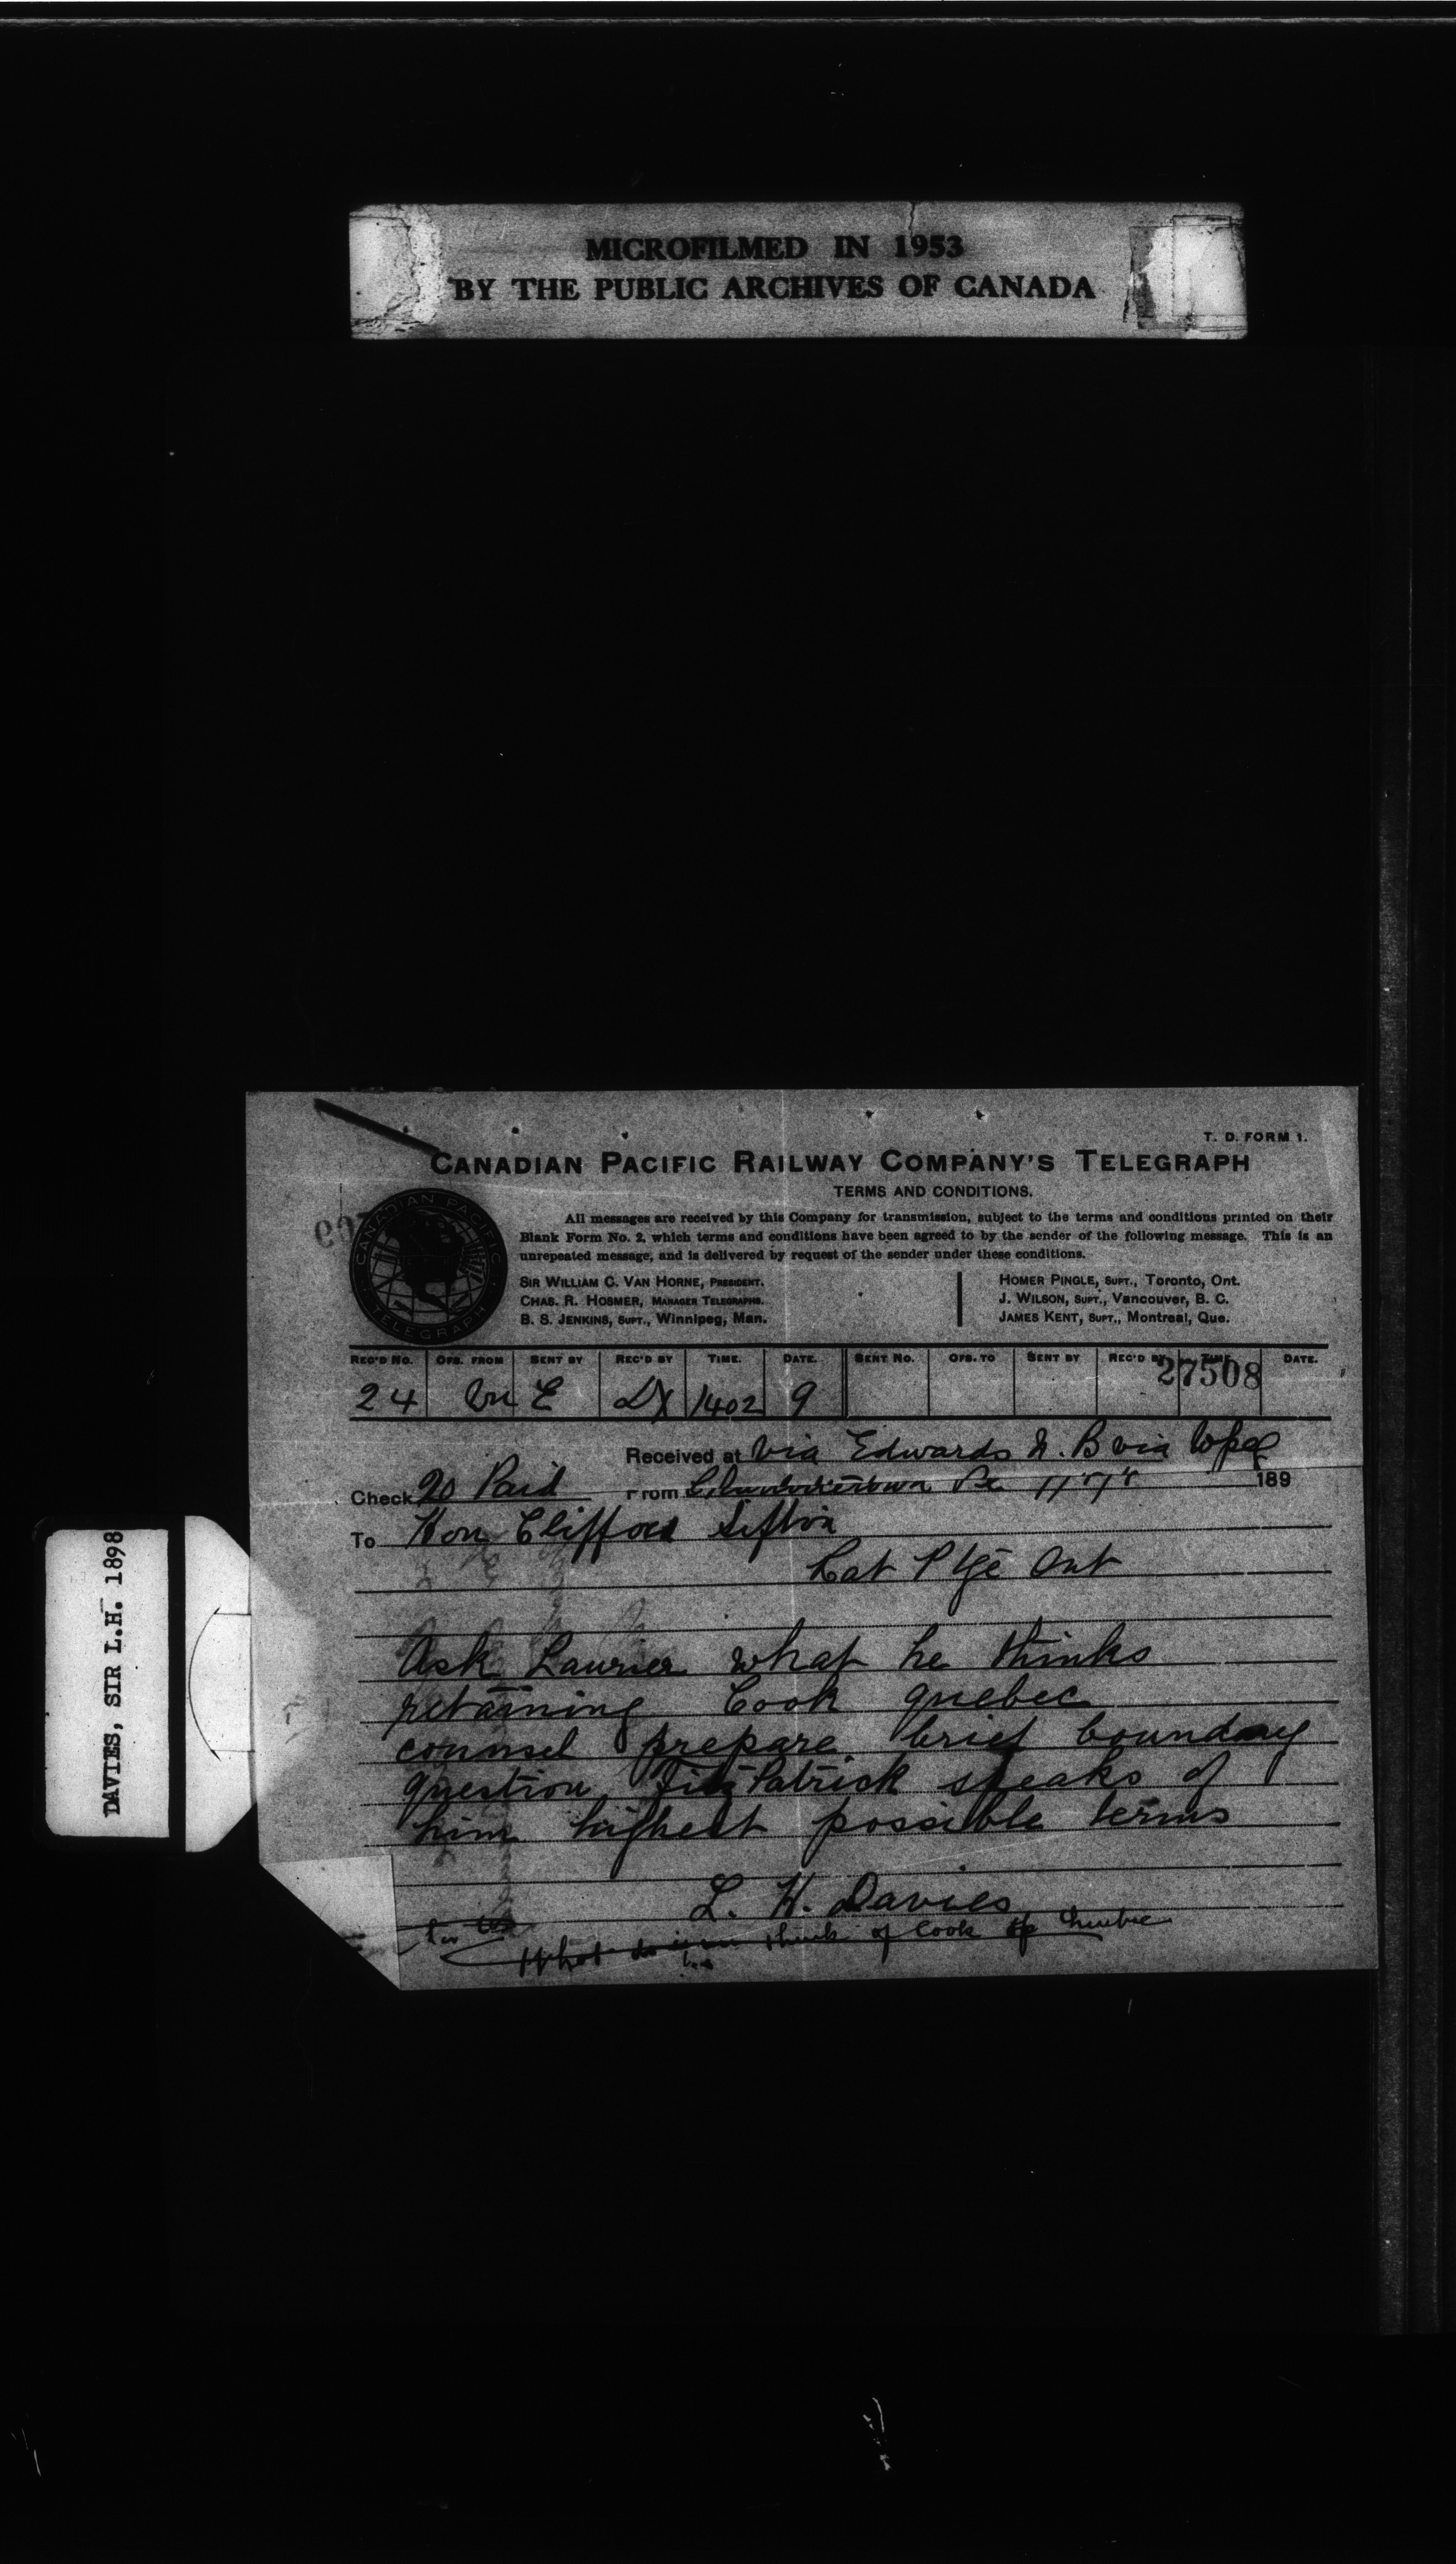 MICROFILMED IN 1953
BY THE PUBLIC ARCHIVES OF CANADA
DAVIES, SIR L.H. 1898
T. D. FORM 1.
CANADIAN PACIFIC RAILWAY COMPANY'S TELEGRAPH
TERMS AND CONDITIONS.
All messages are received by this Company for transmission, subject to the terms and conditions printed on their
Blank Form No. 2, which terms and conditions have been agreed to by the sender of the following message. This is an
unrepeated message, and is delivered by request of the sender under these conditions.
SIR WILLIAM C. VAN HORNE, PRESIDENT.
CHAS. R. HOSMER, MANAGER TELEGRAPHS.
B. S. JENKINS, SUPT., Winnipeg, Man.
HOMER PINGLE, SUPT., Toronto, Ont.
J. WILSON, SUPT., Vancouver, B. C.
JAMES KENT, SUPT., Montreal, Que.
CANADIAN PACIFIC TELEGRAPH
REC'D No. OFS. FROM SENT BY REC'D BY TIME. DATE. SENT No. OFS. TO SENT BY REC'D BY TIME DATE.
24 E DX 1402 9 27508
Received at Via Edwards N. B via Wpg
Check 20 Paid From Charlottetown Pe 189
To Hon Clifford Sifton
Rat Ptge Ont
Ask Laurier what he thinks
retaining Cook quebec
counsel prepare brief boundary
question FitzPatrick speaks of
him highest possible terms
L. H. Davies
What do think of Cook of Quebec